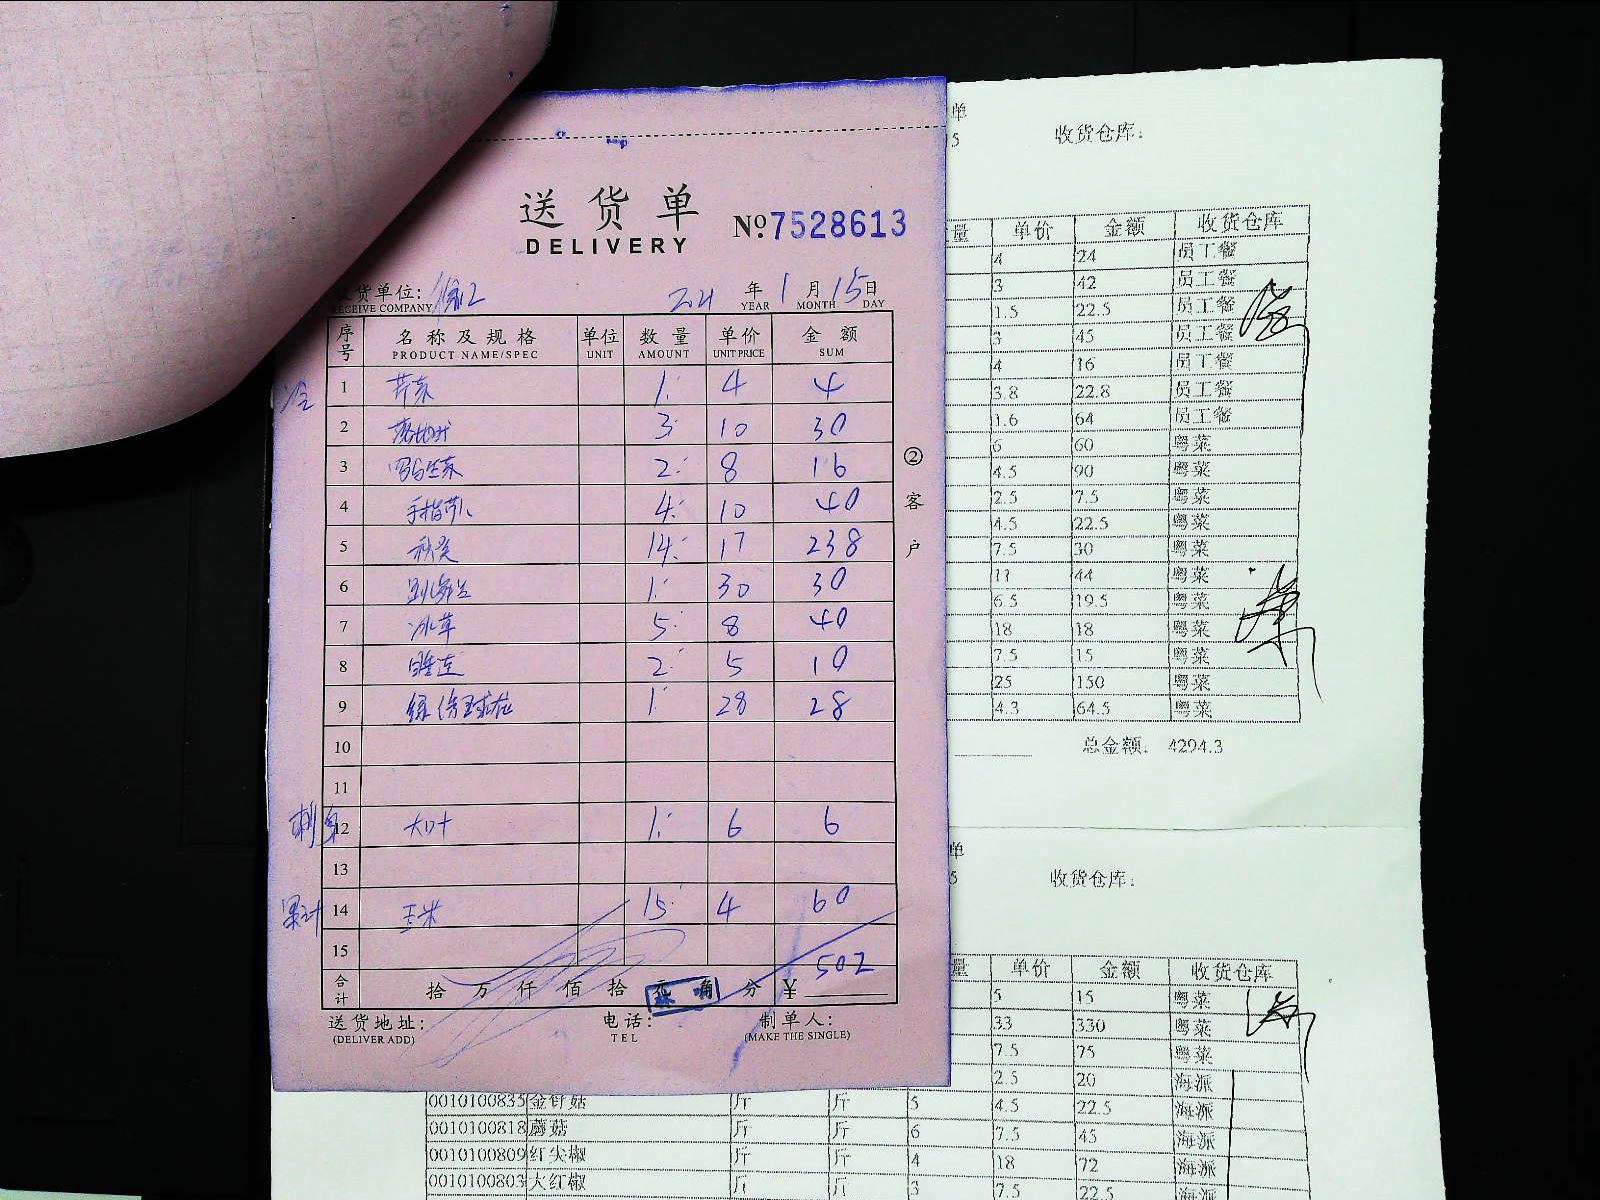 送货单
DELIVERY
№ 7528613
货单位: 徐汇
RECEIVE COMPANY
2021 年 1 月 15 日
YEAR MONTH DAY
序号 名称及规格 单位 数量 单价 金额
PRODUCT NAME/SPEC UNIT AMOUNT UNIT PRICE SUM
1 芹菜 1 4 4
2 3 10 30
3 罗马生菜 2 8 16
4 手指萝卜 4 10 40
5 秋葵 14 17 238
6 1 30 30
7 冰草 5 8 40
8 2 5 10
9 1 28 28
10
11
刺身
12 大叶 1 6 6
13
累计
14 玉米 15 4 60
15
合计 拾 万 仟 佰 拾 元 角 分 ¥ 502
送货地址: 电话: 制单人:
(DELIVER ADD) TEL (MAKE THE SINGLE)
②客户
单
5 收货仓库:
量 单价 金额 收货仓库
4 24 员工餐
3 42 员工餐
1.5 22.5 员工餐
3 45 员工餐
4 16 员工餐
3.8 22.8 员工餐
1.6 64 员工餐
6 60 粤菜
4.5 90 粤菜
2.5 7.5 粤菜
4.5 22.5 粤菜
7.5 30 粤菜
11 44 粤菜
6.5 19.5 粤菜
18 18 粤菜
7.5 15 粤菜
25 150 粤菜
4.3 64.5 粤菜
总金额: 4294.3
单
5 收货仓库:
量 单价 金额 收货仓库
5 15 粤菜
33 330 粤菜
7.5 75 粤菜
2.5 20 海派
0010100835 金针菇 斤 斤 5 4.5 22.5 海派
0010100818 蘑菇 斤 斤 6 7.5 45 海派
0010100809 红尖椒 斤 斤 4 18 72 海派
0010100803 大红椒 斤 斤 3 7.5 22.5 海派